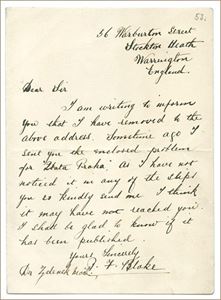 53.
36 Warburton Street
Stockton Heath
Warrington
England.
Dear Sir
I am writing to inform
you that I have removed to the
above address. Sometime ago I
sent you the enclosed problem
for "Zlata Praha". As I have not
noticed it in any of the
you so kindly send me I think
it may have not reached you.
I shall be glad to know if it
has been published.
Yours Sincerely
F. Blake
Dr Zdenek